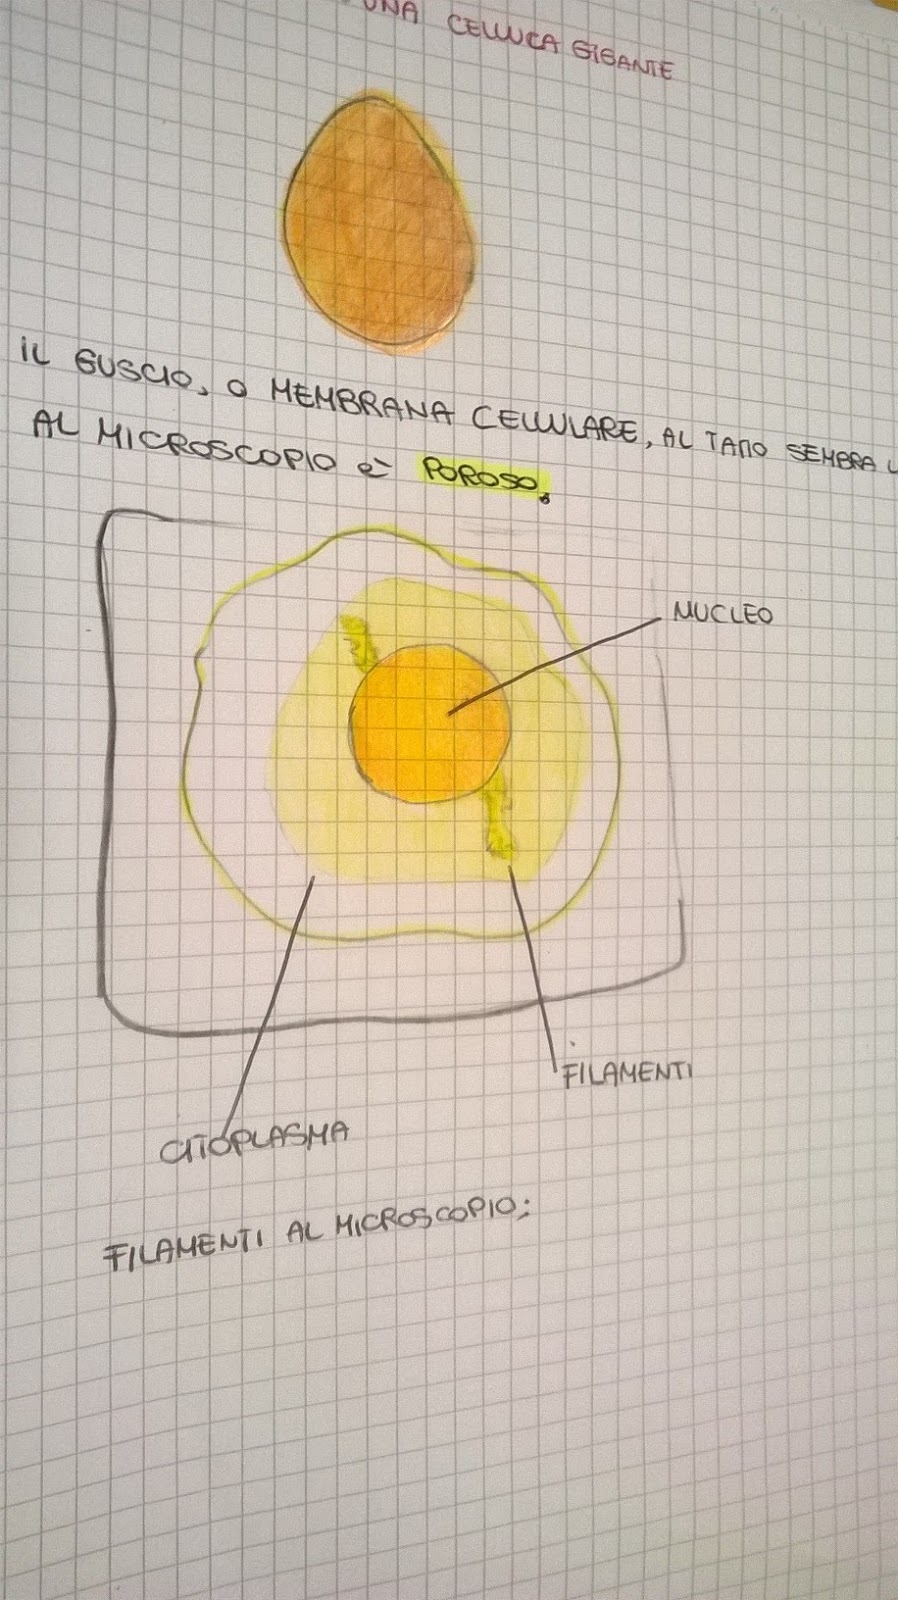 UNA CELLULA GIGANTE
IL GUSCIO, O MEMBRANA CELLULARE, AL TATTO SEMBRA
AL MICROSCOPIO è POROSO.
NUCLEO
FILAMENTI
CITOPLASMA
FILAMENTI AL MICROSCOPIO;